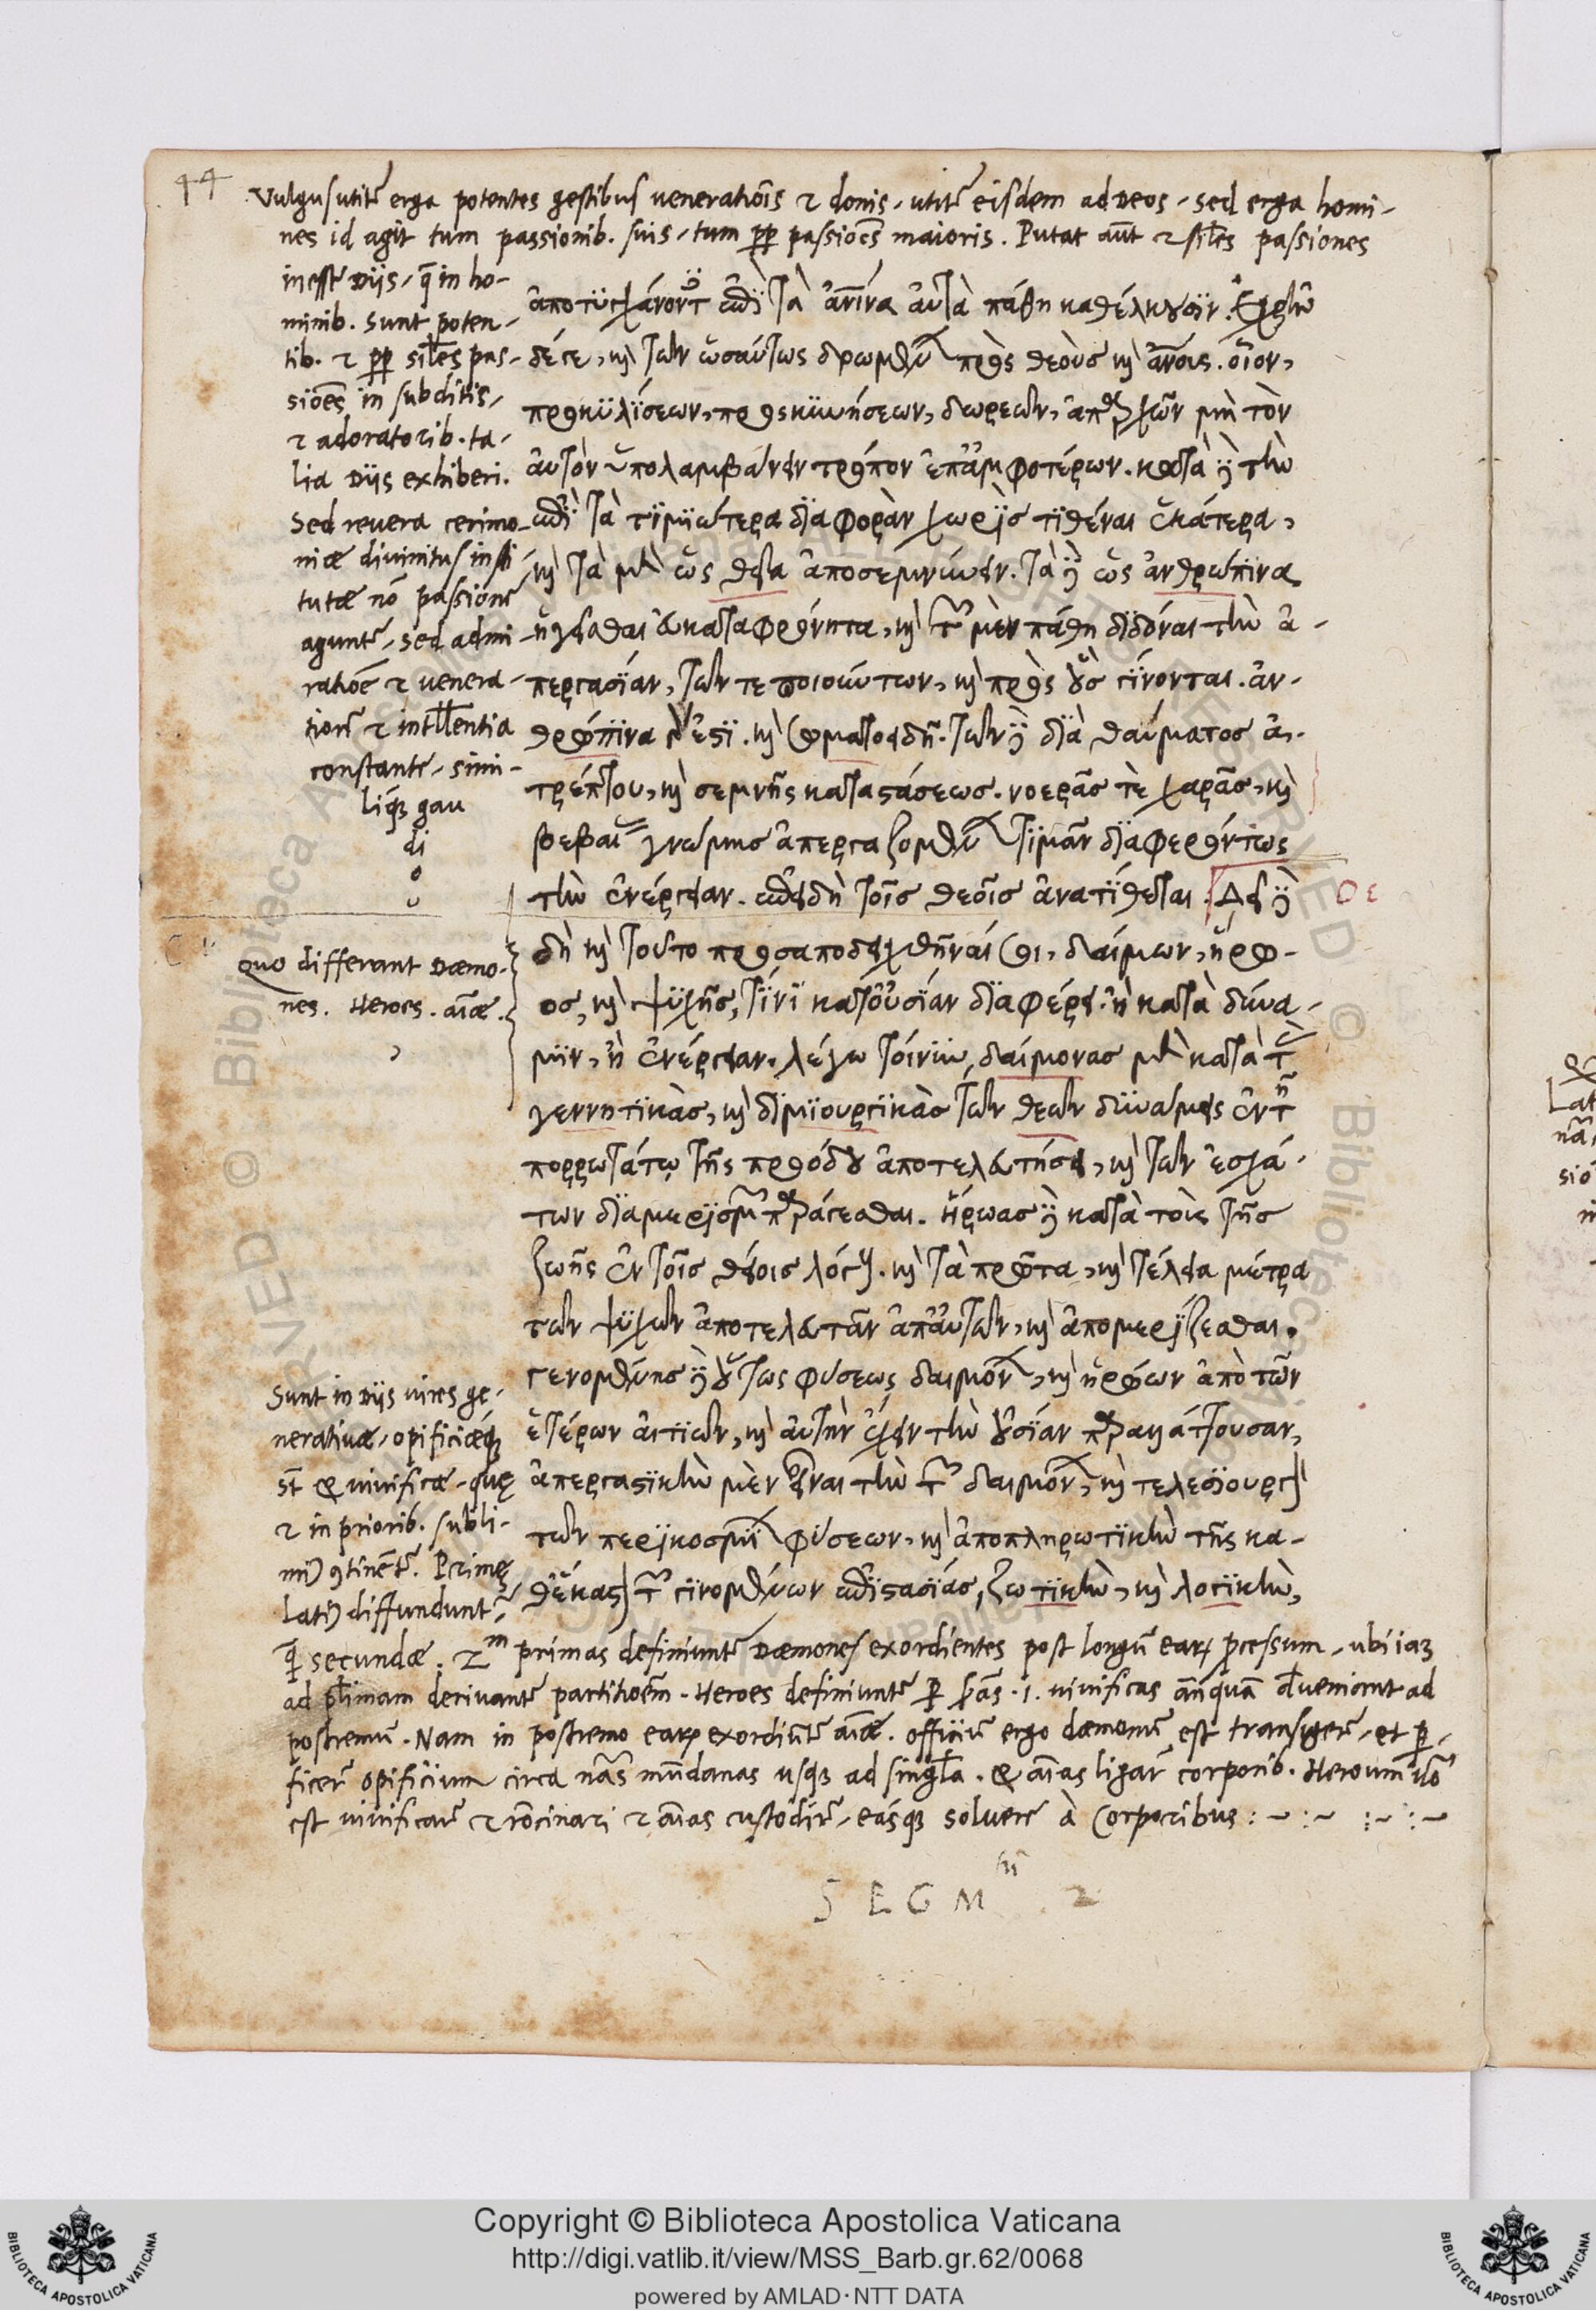 44
Vulgus utit erga potentes gestibus venerationis & donis, utit eisdem ad Deos, sed erga homi-
nes id agit tum passionib. suis, tum passiones maioris. Putat aut & siles passiones
inesse Diis, in ho-
minib. sunt poten-
tib. & siles pas-
siones in subditis,
& adoratorib. ta-
lia Diis exhiberi.
Sed revera cerimo-
niae divinitus insti
tutae nō passione
agunt, sed admi
ratiōe & venera-
tione & intllentia
constante, simi-
liqz gau
di
o
ἀποτυγχάνοντ ἐπὶ τὰ ἀνινα αὐτὰ πάθη καθέλκουσιν.
δέ γε, καὶ τῶν ὡσαύτως δρωμέν πρὸς θεοὺς καὶ ἀνοις. οἷον,
προκυλίσεων, προσκυνήσεων, δωρεῶν, ἀπαρχῶν μὴ τὸν
αὐτὸν ὑπολαμβάνειν τρόπον ἐπ' ἀμφοτέρων. κατὰ δὲ τὴν
ἐπὶ τὰ τιμιώτερα διαφορὰν χωρὶς τιθέναι ἑκάτερα,
καὶ τὰ μὲν ὡς θεῖα ἀποσεμνύνειν. τὰ δὲ ὡς ἀνθρώπινα
ἡγεῖσθαι εὐκαταφρόνητα, καὶ τ μὲν πάθη διδόναι τὴν ἀ-
περγασίαν, τῶν τε ποιούντων, καὶ πρὸς οὓς γίνονται. ἀν-
θρώπινα γ ἐστι. καὶ σωματοειδῆ. τῶν δὲ διὰ θαύματος ἀ-
τρέπτου, καὶ σεμνῆς καταστάσεως. νοερᾶς τὲ χαρᾶς, καὶ
βεβαί γνώμης ἀπεργαζομέν τιμᾶν διαφερόντως
τὴν ἐνέργειαν. ἐπειδὴ τοῖς θεοῖς ἀνατίθεται. Δεῖ δὲ
δὴ καὶ τοῦτο προσαποδειχθῆναί σοι, δαίμων, ἥρω-
ος, καὶ ψυχῆς, τίνι κατ' οὐσίαν διαφέρει. ἢ κατὰ δύνα-
μιν, ἢ ἐνέργειαν. λέγω τοίνυν, δαίμονας μὲν κατὰ τ
γεννητικὰς, καὶ δημιουργικὰς τῶν θεῶν δυνάμεις ἐν τ
πορρωτάτω τῆς προόδου ἀποτελευτήσει, καὶ τῶν ἐσχά-
των διαμερισμ παράγεσθαι. ἥρωας δὲ κατὰ τοὺς τῆς
ζωῆς ἐν τοῖς θείοις λόγους. καὶ τὰ πρῶτα, καὶ τέλεια μέτρα
τῶν ψυχῶν ἀποτελευτᾶν ἀπ' αὐτῶν, καὶ ἀπομερίζεσθαι.
γενομένης δὲ οὕτως φύσεως δαιμόν, καὶ ἡρώων ἀπὸ τῶν
ἑτέρων αἰτιῶν, καὶ αὐτὴν ἔχειν τὴν οὐσίαν παραλλάττουσαν,
ἀπεργαστικὴν μὲν εἶναι τὴν τ δαιμόν, καὶ τελεσιουργ
τῶν περικοσμί φύσεων, καὶ ἀποπληρωτικὴν τῆς κα-
θ' ἕκαστ τ γινομένων ἐπιστασίας, ζωτικὴν, καὶ λογικὴν,
OE
Quo differant Daemo-
nes. Heroes. aīae.
Sunt in Diis vires ge-
nerativae, opificiaeq
st & vivificae, quę
& in priorib. subli-
Primę
latiꝰ diffundunt,
secundae. primas definiunt Daemones exordientes post longū ear pcessum, ubi iam
ad derivant partitioēm. Heroes definiunt .i. vivificas ad
postremū. Nam in postremo ear exordiūt aīae. officiū ergo daemonū est et
ficere opificium circa nās mūdanas usqz ad singla. & aīas ligare corporib. Heroum
est vivificare & rōcinari & aīas custodire, easqz solvere à Corporibus :~ :~ :~ :~
SEGM 2
Copyright © Biblioteca Apostolica Vaticana
http://digi.vatlib.it/view/MSS_Barb.gr.62/0068
powered by AMLAD·NTT DATA